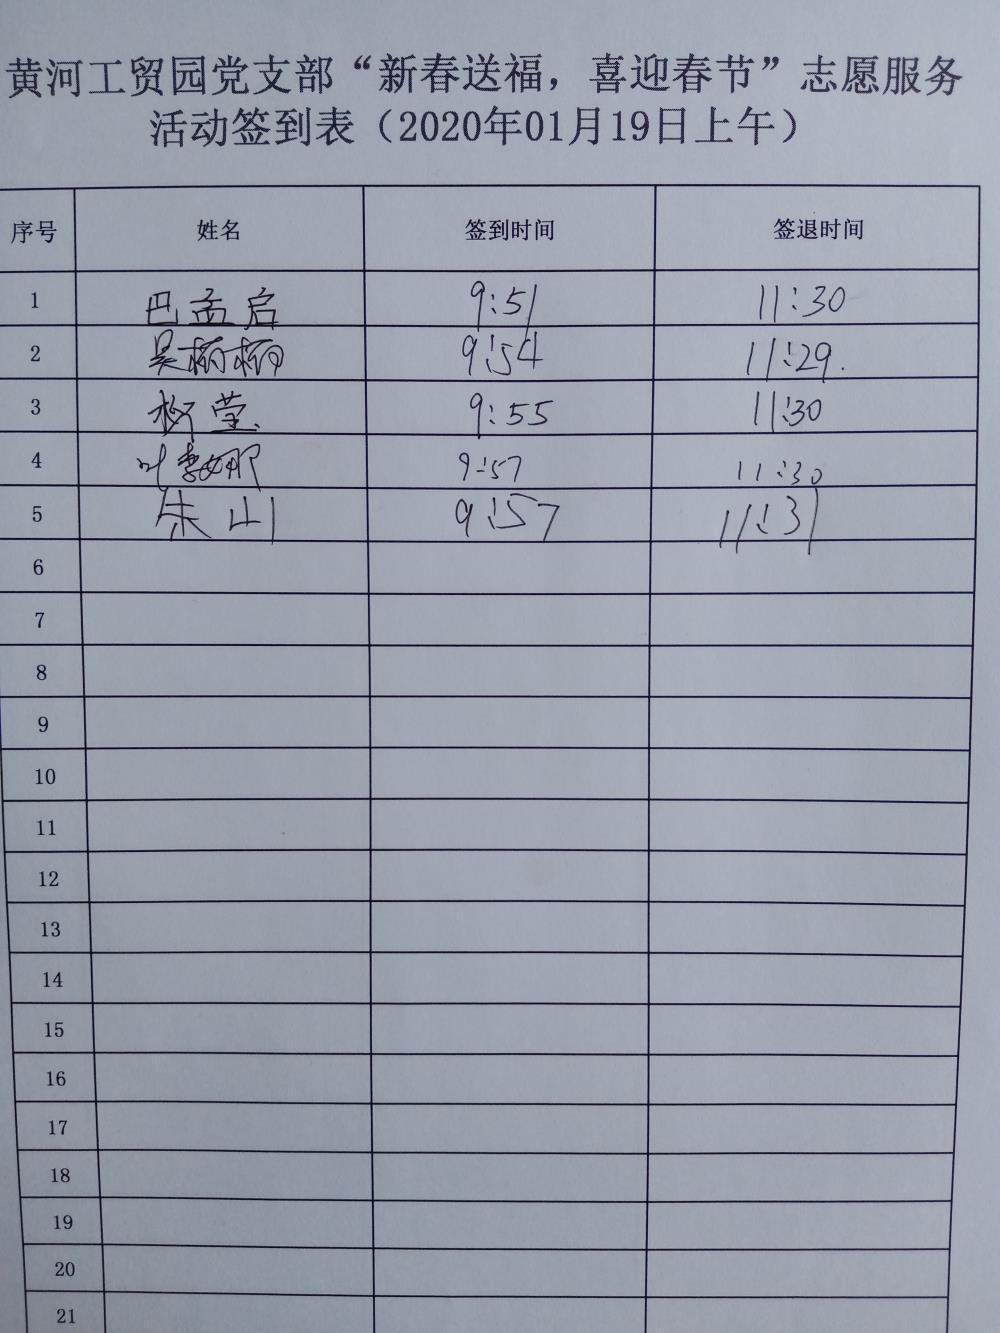 黄河工贸园党支部“新春送福，喜迎春节”志愿服务
活动签到表（2020年01月19日上午）
序号 姓名 签到时间 签退时间
1 巴孟启 9:51 11:30
2 吴柄柄 9:54 11:29.
3 柳莹 9:55 11:30
4 叶李娜 9:57 11:30
5 朱山 9:57 11:31
6
7
8
9
10
11
12
13
14
15
16
17
18
19
20
21